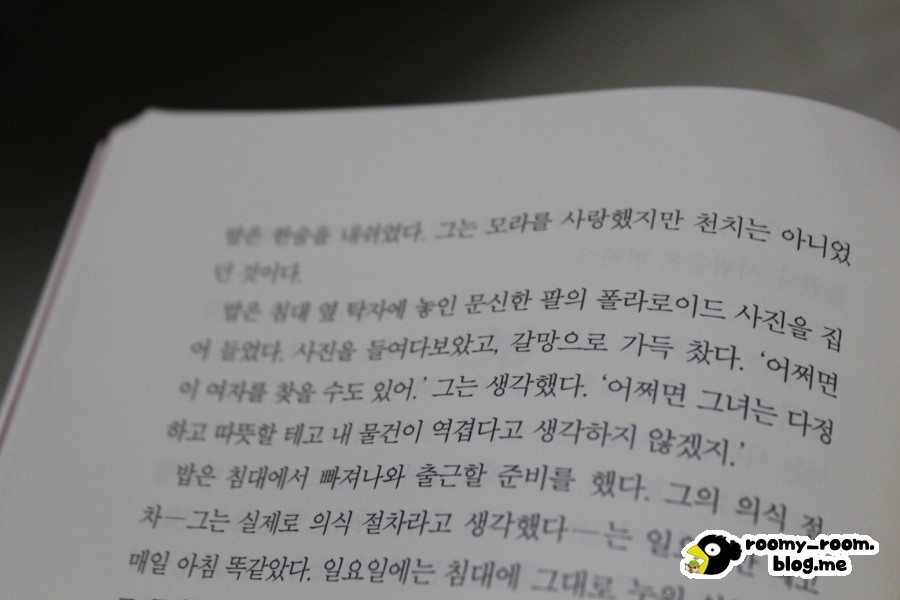 밥은 한숨을 내쉬었다. 그는 모라를 사랑했지만 천치는 아니었
던 것이다.
밥은 침대 옆 탁자에 놓인 문신한 팔의 폴라로이드 사진을 집
어 들었다. 사진을 들여다보았고, 갈망으로 가득 찼다. ‘어쩌면
이 여자를 찾을 수도 있어.’ 그는 생각했다. ‘어쩌면 그녀는 다정
하고 따뜻할 테고 내 물건이 역겹다고 생각하지 않겠지.’
밥은 침대에서 빠져나와 출근할 준비를 했다. 그의 의식 절
차—그는 실제로 의식 절차라고 생각했다—는
매일 아침 똑같았다. 일요일에는 침대에 그대로 누워
roomy_room.
blog.me